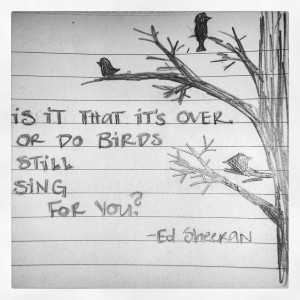 is it that it's over.
or do birds
still
sing
for you?
-Ed Sheeran